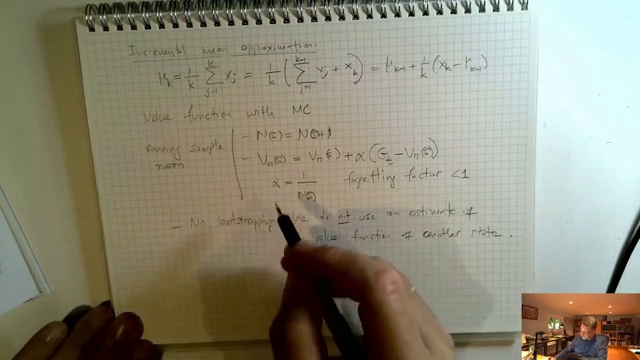 Incremental mean approximation:
μ_k = 1/k Σ_{j=1}^{k} x_j = 1/k ( Σ_{j=1}^{k-1} x_j + x_k ) = μ_{k-1} + 1/k (x_k − μ_{k-1})
Value function with MC
running sample mean
− N(s) = N(s)+1
− V_π(s) = V_π(s) + α (G_t − V_π(s))
α = 1/N(s) forgetting factor < 1
− No bootstrapping. We do not use an estimate of
value function of another state.